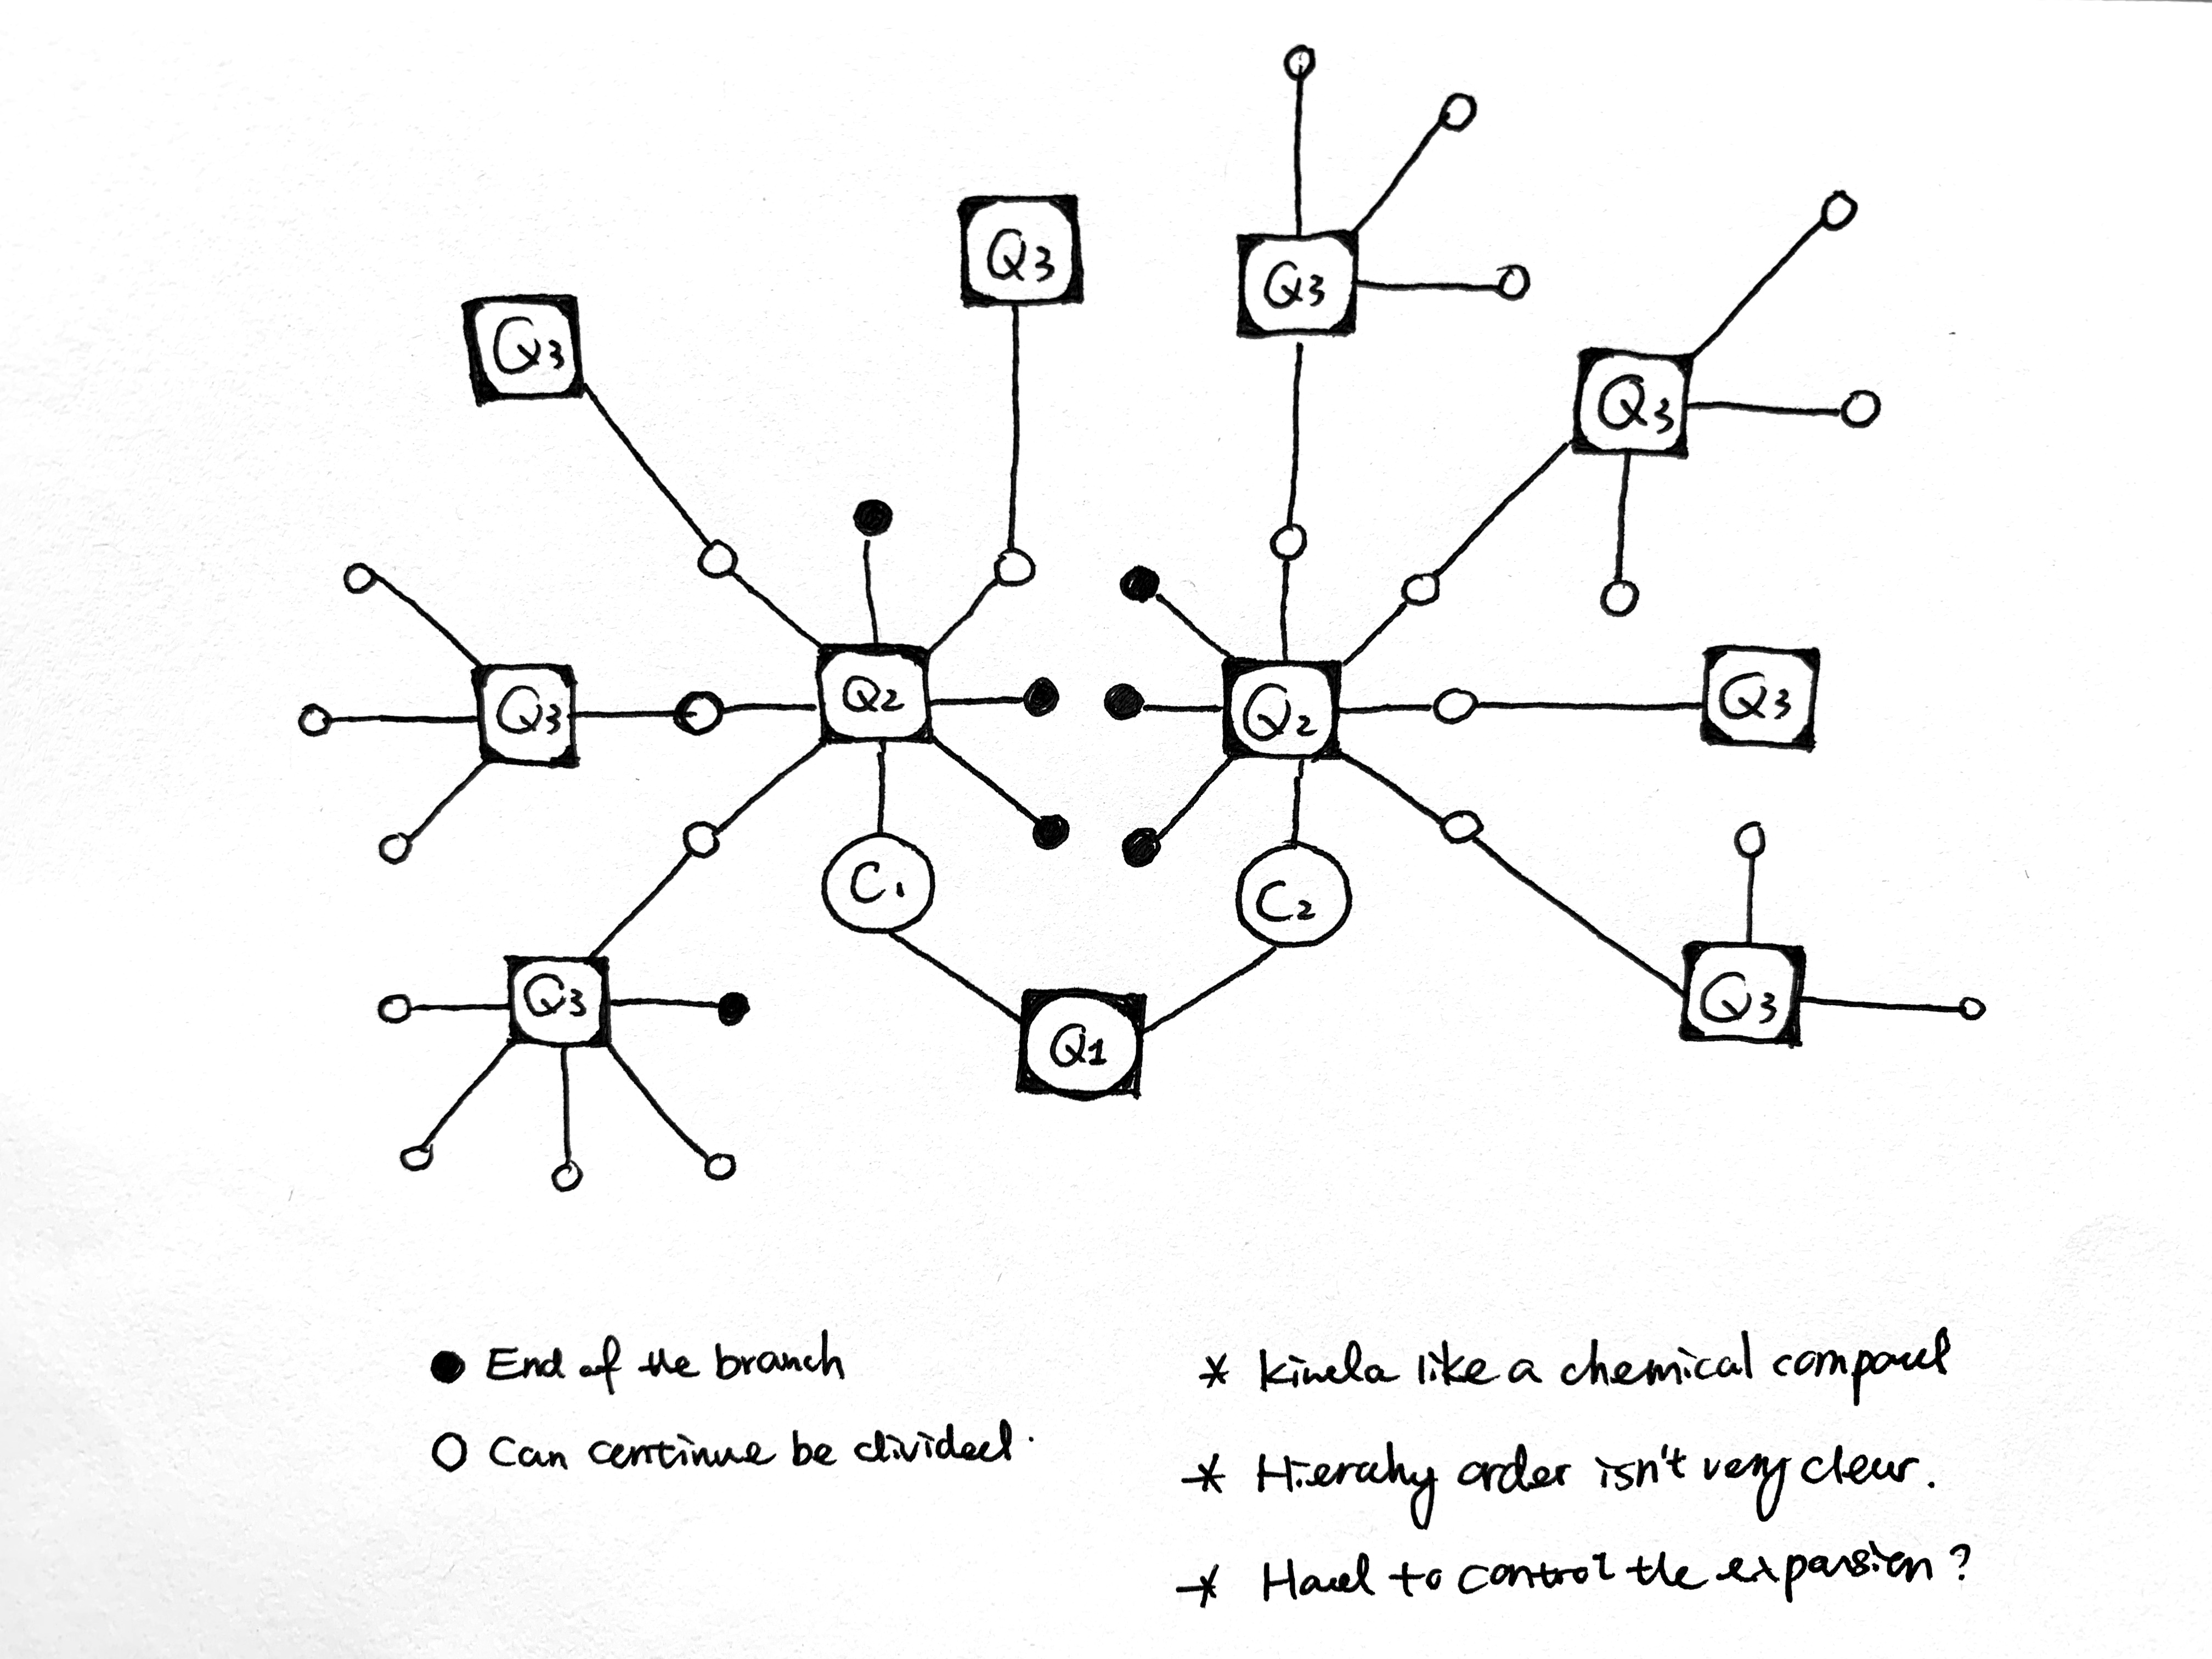 Q3
Q3
Q3
Q3
Q3
Q2
Q2
Q3
Q3
C1
C2
Q3
Q3
Q1
End of the branch
Can continue be divided.
* Kinda like a chemical compoud
* Hierachy order isn't very clear.
* Hard to control the expansion?